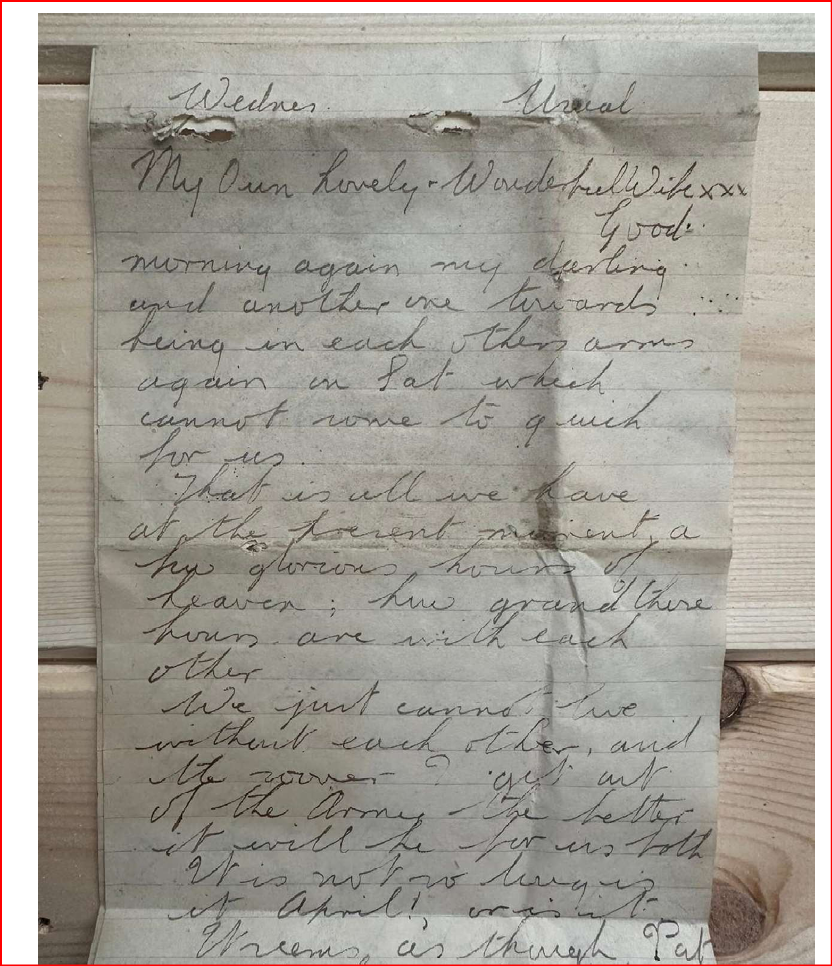 Wednes. Usual
My Own Lovely - Wonderful Wife xxx
Good
morning again my darling
and another one towards
being in each others arms
again on Sat which
cannot come to quick
for us.
That is all we have
at the present moment, a
few glorious hours of
heaven; how grand there
hours are with each
other
We just cannot live
without each other, and
the sooner I get out
of the Army the better
it will be for us both
It is not so long is
it April!, or is it.
It seems, as though, Pat